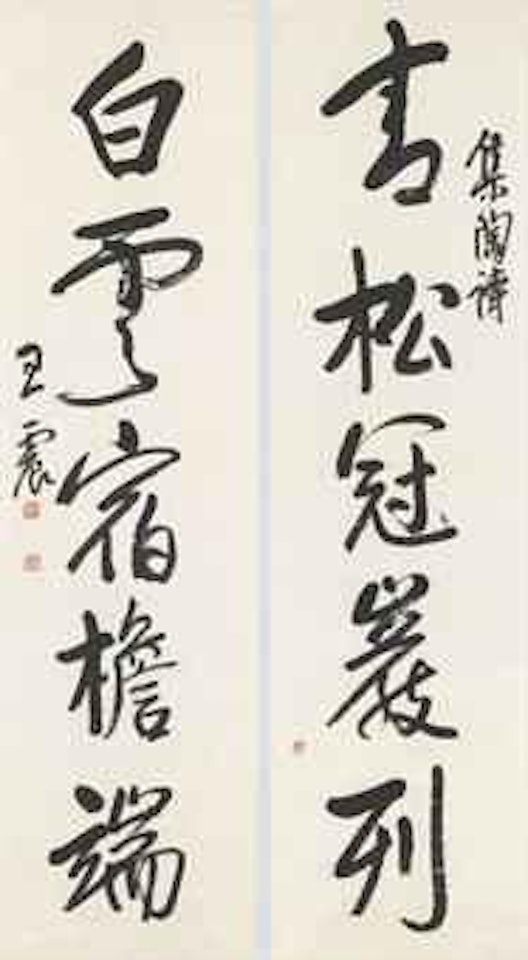 集陶诗
青松冠巖列
白雲宿檐端
王震